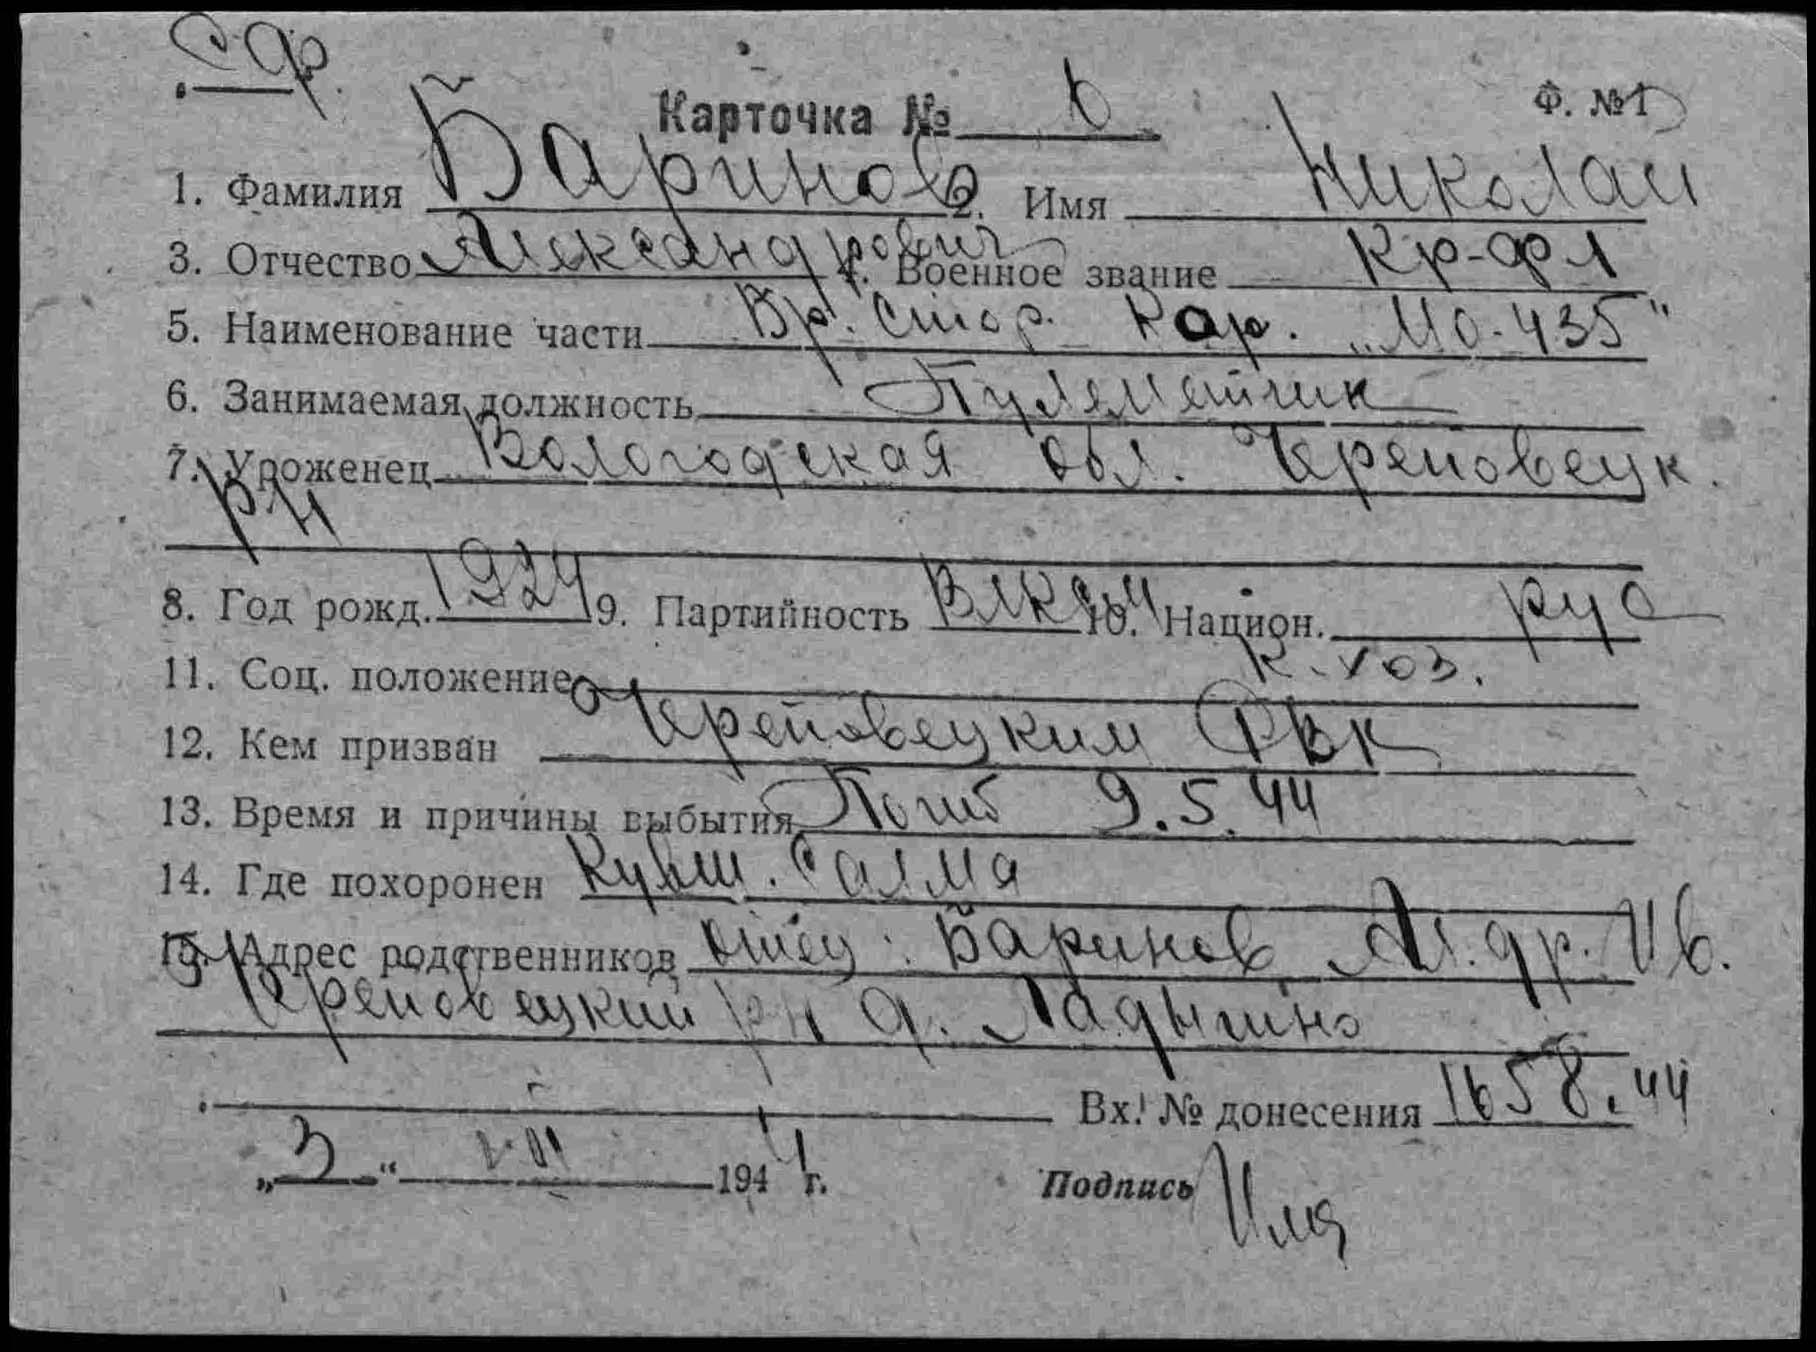 СФ.
Карточка № 6 Ф. №1
1. Фамилия Баринов 2. Имя Николай
3. Отчество Александрович 4. Военное звание Кр-фл
5. Наименование части Бр. Стор. Кор. „МО-435"
6. Занимаемая должность Пулеметчик
7. Уроженец Вологодская обл. Череповецк.
р-н
8. Год рожд. 1924 9. Партийность ВЛКСМ 10. Национ. рус
11. Соц. положение К-хоз.
12. Кем призван Череповецким РВК
13. Время и причины выбытия Погиб 9.5.44
14. Где похоронен Кувш. Салма
15. Адрес родственников отец: Баринов Ал.др. Ив.
Череповецкий рн д. Ладыгино
Вх. № донесения 1658.44
„3" VIII 1944 г. Подпись